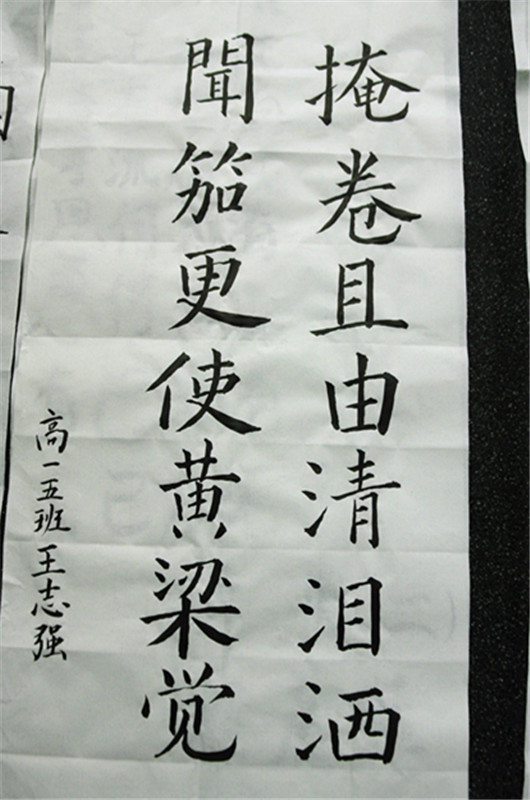 掩卷且由清泪洒
聞笳更使黄梁觉
高一五班王志强